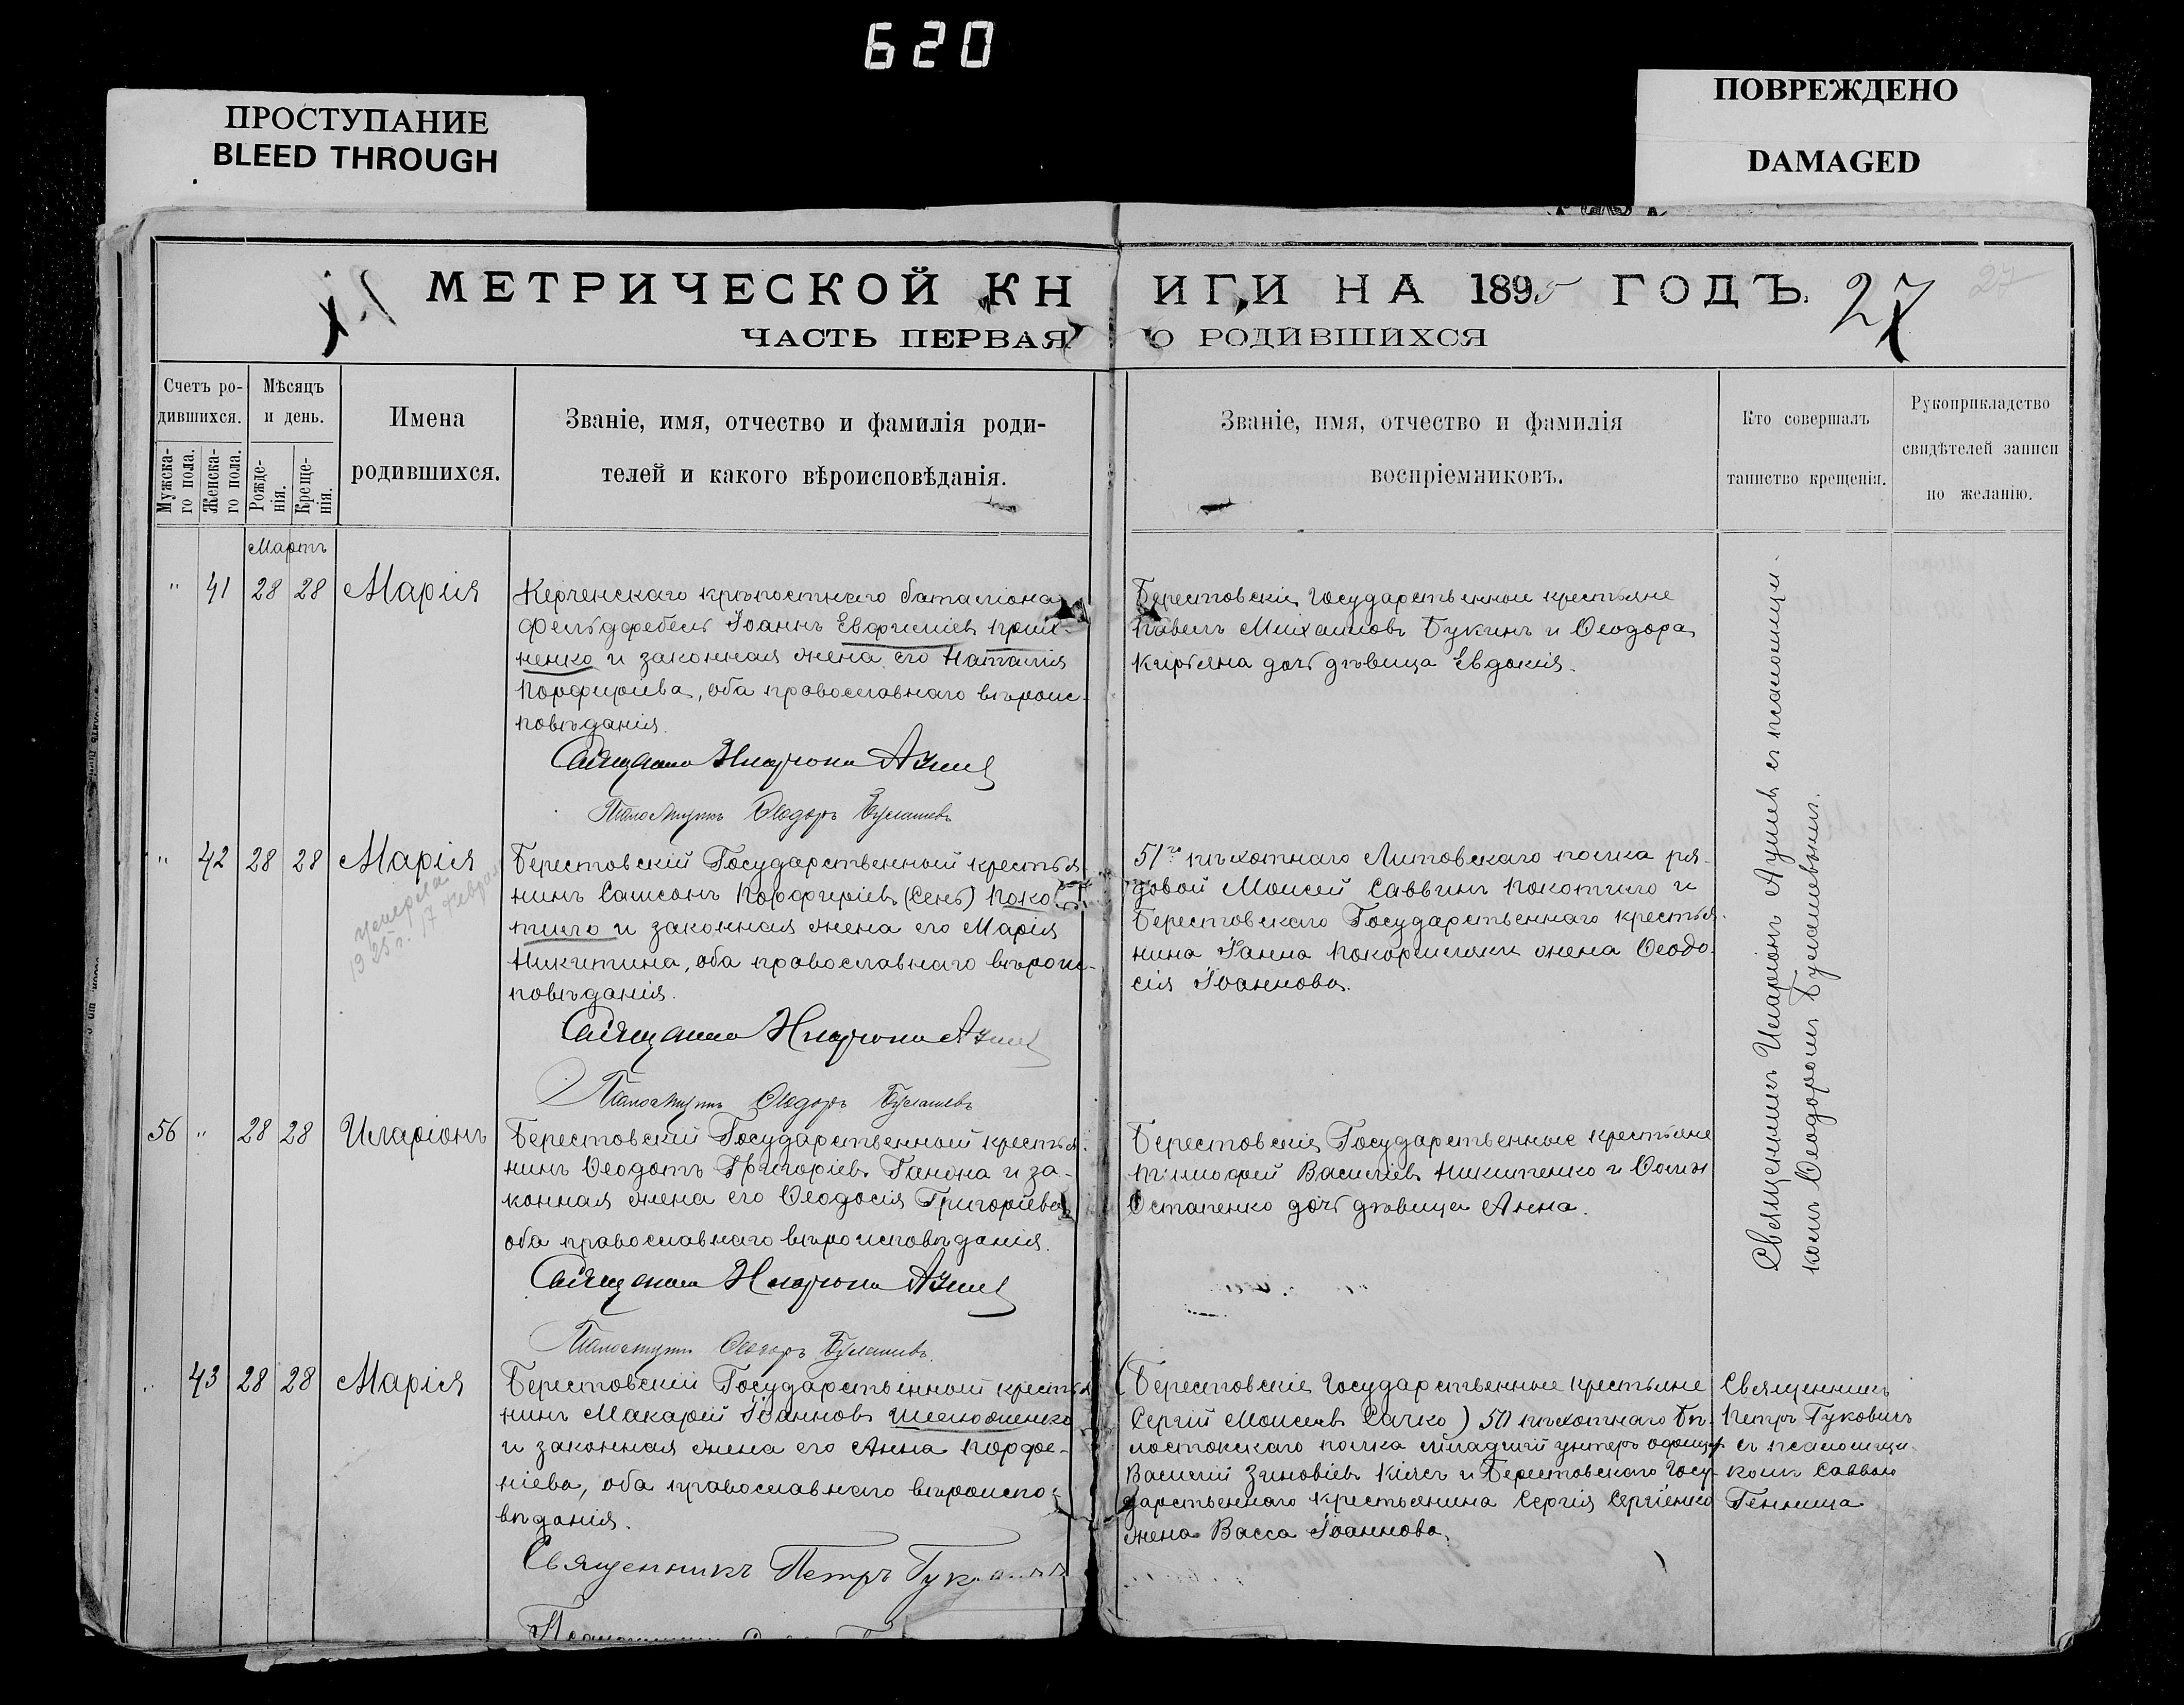 620
ПРОСТУПАНИЕ
BLEED THROUGH
ПОВРЕЖДЕНО
DAMAGED
МЕТРИЧЕСКОЙ КНИГИ НА 1895 ГОДЪ.
27
27
ЧАСТЬ ПЕРВАЯ О РОДИВШИХСЯ
Счетъ ро-
дившихся.
Мужска-
го пола.
Женска-
го пола.
Мѣсяцъ
и день.
Рожде-
нія.
Креще-
нія.
Имена
родившихся.
Званіе, имя, отчество и фамилія роди-
телей и какого вѣроисповѣданія.
Званіе, имя, отчество и фамилія
воспріемниковъ.
Кто совершалъ
таинство крещенія.
Рукоприкладство
свидѣтелей записи
по желанію.
Мартъ
" 41 28 28 Марія
Керченскаго крѣпостнаго баталіона
Фельдфебель Іоаннъ Евфиміевъ
ненко и законная жена его Наталія
Порфиріева, оба православнаго вѣроис-
повѣданія.
Священникъ Иларіонъ
Псаломщикъ Ѳеодоръ Булашевъ
Берестовскіе Государственные крестьяне
Павелъ Михаиловъ Букинъ и Ѳеодора
Кирьяна дочь дѣвица Евдокія.
" 42 28 28 Марія
умерла
1925 г. 17 февраля
Берестовскій Государственный крестья-
нинъ Самсонъ Порфиріевъ (Сенъ) Поко-
тило и законная жена его Марія
Никитина, оба православнаго вѣроис-
повѣданія.
Священникъ Иларіонъ
Псаломщикъ Ѳеодоръ Булашевъ
51го пѣхотнаго Литовскаго полка ря-
довой Моисей Саввинъ Покотило и
Берестовскаго Государственнаго крестья-
нина жена Ѳеодо-
сія Іоаннова.
56 " 28 28 Иларіонъ
Берестовскій Государственный крестья-
нинъ Ѳеодотъ Григоріевъ и за-
конная жена его Ѳеодосія Григоріева
оба православнаго вѣроисповѣданія.
Священникъ Иларіонъ
Псаломщикъ Ѳеодоръ Булашевъ
Берестовскіе Государственные крестьяне
Тимофей Василіевъ Никитенко и Ѳомы
Остапенко дочь дѣвица Анна.
Священникъ Иларіонъ съ псаломщи-
комъ Ѳеодоромъ Булашевымъ.
" 43 28 28 Марія
Берестовскій Государственный крестья-
нинъ Макарій Іоанновъ
и законная жена его Анна Порфи-
ріева, оба православнаго вѣроиспо-
вѣданія.
Священникъ Петръ
(Берестовскіе Государственные крестьяне
Сергій Моисеевъ Сачко) 50 пѣхотнаго Бѣ-
лостокскаго полка младшій унтеръ офицеръ
Василій Зиновіевъ и Берестовскаго Госу-
дарственнаго крестьянина Сергія Сергіенко
жена Васса Іоаннова.
Священникъ
Петръ
съ псаломщи-
комъ Саввою